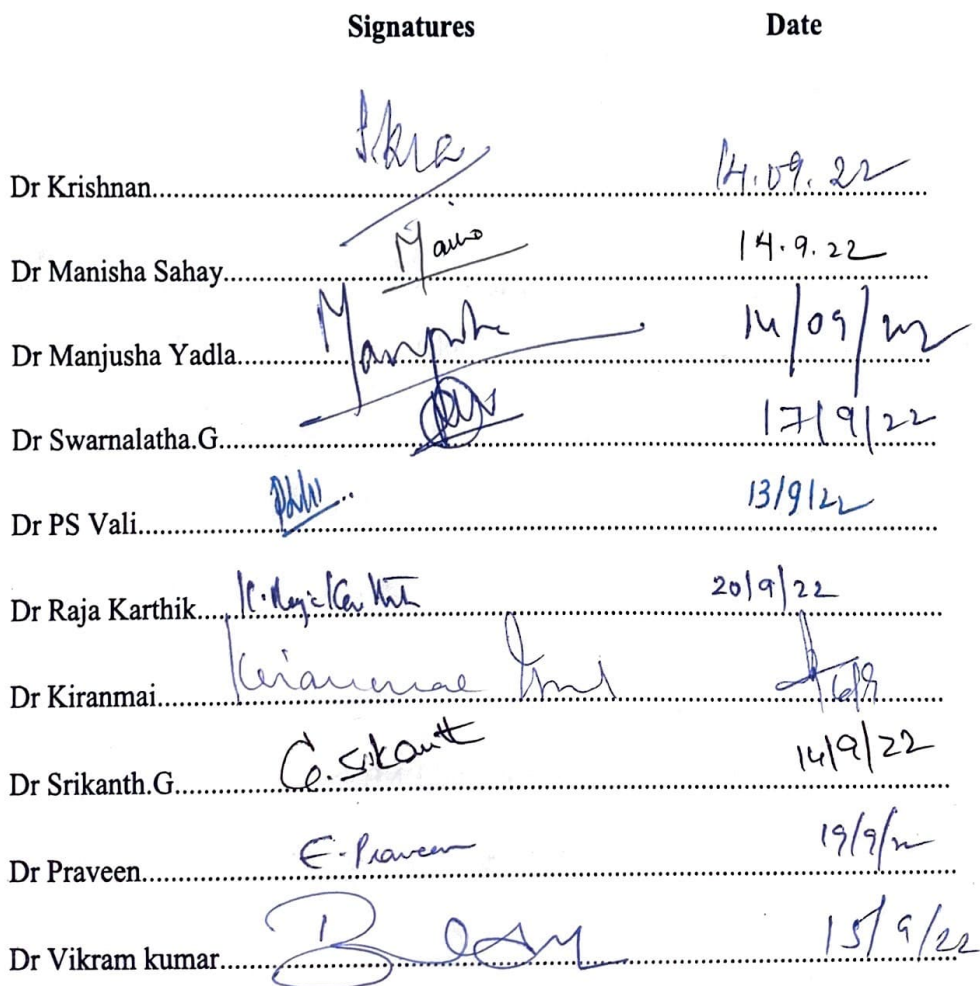 Signatures Date
Dr Krishnan 14.09.22
Dr Manisha Sahay 14.9.22
Dr Manjusha Yadla Manjusha 14/09/22
Dr Swarnalatha.G 17/9/22
Dr PS Vali 13/9/22
Dr Raja Karthik K.Raja Karthik 20/9/22
Dr Kiranmai Kiranmai
Dr Srikanth.G G.Srikanth 14/9/22
Dr Praveen E.Praveen 19/9/22
Dr Vikram kumar 15/9/22